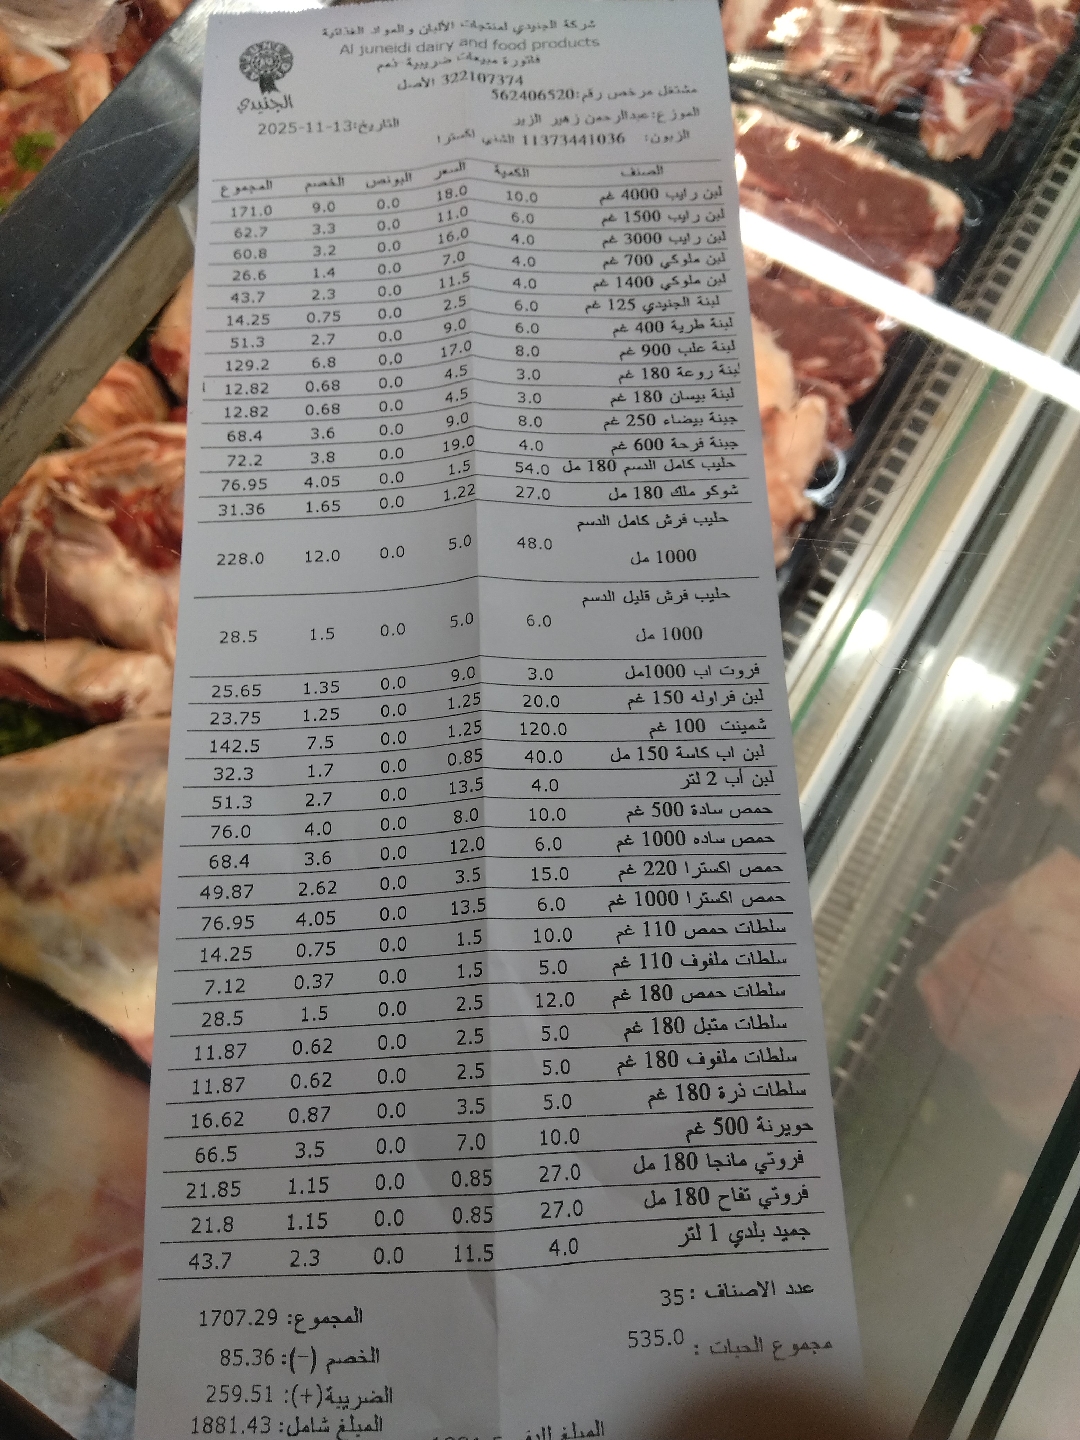 شركة الجنيدي لمنتجات الألبان والمواد الغذائية
Al juneidi dairy and food products
فاتورة مبيعات ضريبية-نعم
322107374 الأصل
الجنيدي
مشتغل مرخص رقم:562406520
الموزع:عبدالرحمن زهير الزير
التاريخ:13-11-2025
الزبون: 11373441036 الشني اكسترا
الصنف الكمية السعر البونص الخصم المجموع
لبن رايب 4000 غم 10.0 18.0 0.0 9.0 171.0
لبن رايب 1500 غم 6.0 11.0 0.0 3.3 62.7
لبن رايب 3000 غم 4.0 16.0 0.0 3.2 60.8
لبن ملوكي 700 غم 4.0 7.0 0.0 1.4 26.6
لبن ملوكي 1400 غم 4.0 11.5 0.0 2.3 43.7
لبنة الجنيدي 125 غم 6.0 2.5 0.0 0.75 14.25
لبنة طرية 400 غم 6.0 9.0 0.0 2.7 51.3
لبنة علب 900 غم 8.0 17.0 0.0 6.8 129.2
لبنة روعة 180 غم 3.0 4.5 0.0 0.68 12.82
لبنة بيسان 180 غم 3.0 4.5 0.0 0.68 12.82
جبنة بيضاء 250 غم 8.0 9.0 0.0 3.6 68.4
جبنة فرحة 600 غم 4.0 19.0 0.0 3.8 72.2
حليب كامل الدسم 180 مل 54.0 1.5 0.0 4.05 76.95
شوكو ملك 180 مل 27.0 1.22 0.0 1.65 31.36
حليب فرش كامل الدسم
1000 مل 48.0 5.0 0.0 12.0 228.0
حليب فرش قليل الدسم
1000 مل 6.0 5.0 0.0 1.5 28.5
فروت اب 1000مل 3.0 9.0 0.0 1.35 25.65
لبن فراوله 150 غم 20.0 1.25 0.0 1.25 23.75
شمينت 100 غم 120.0 1.25 0.0 7.5 142.5
لبن اب كاسة 150 مل 40.0 0.85 0.0 1.7 32.3
لبن أب 2 لتر 4.0 13.5 0.0 2.7 51.3
حمص سادة 500 غم 10.0 8.0 0.0 4.0 76.0
حمص ساده 1000 غم 6.0 12.0 0.0 3.6 68.4
حمص اكسترا 220 غم 15.0 3.5 0.0 2.62 49.87
حمص اكسترا 1000 غم 6.0 13.5 0.0 4.05 76.95
سلطات حمص 110 غم 10.0 1.5 0.0 0.75 14.25
سلطات ملفوف 110 غم 5.0 1.5 0.0 0.37 7.12
سلطات حمص 180 غم 12.0 2.5 0.0 1.5 28.5
سلطات متبل 180 غم 5.0 2.5 0.0 0.62 11.87
سلطات ملفوف 180 غم 5.0 2.5 0.0 0.62 11.87
سلطات ذرة 180 غم 5.0 3.5 0.0 0.87 16.62
حويرنة 500 غم 10.0 7.0 0.0 3.5 66.5
فروتي مانجا 180 مل 27.0 0.85 0.0 1.15 21.85
فروتي تفاح 180 مل 27.0 0.85 0.0 1.15 21.8
جميد بلدي 1 لتر 4.0 11.5 0.0 2.3 43.7
عدد الاصناف : 35
المجموع: 1707.29
مجموع الحبات : 535.0
الخصم (-): 85.36
الضريبة(+): 259.51
المبلغ شامل: 1881.43
المبلغ